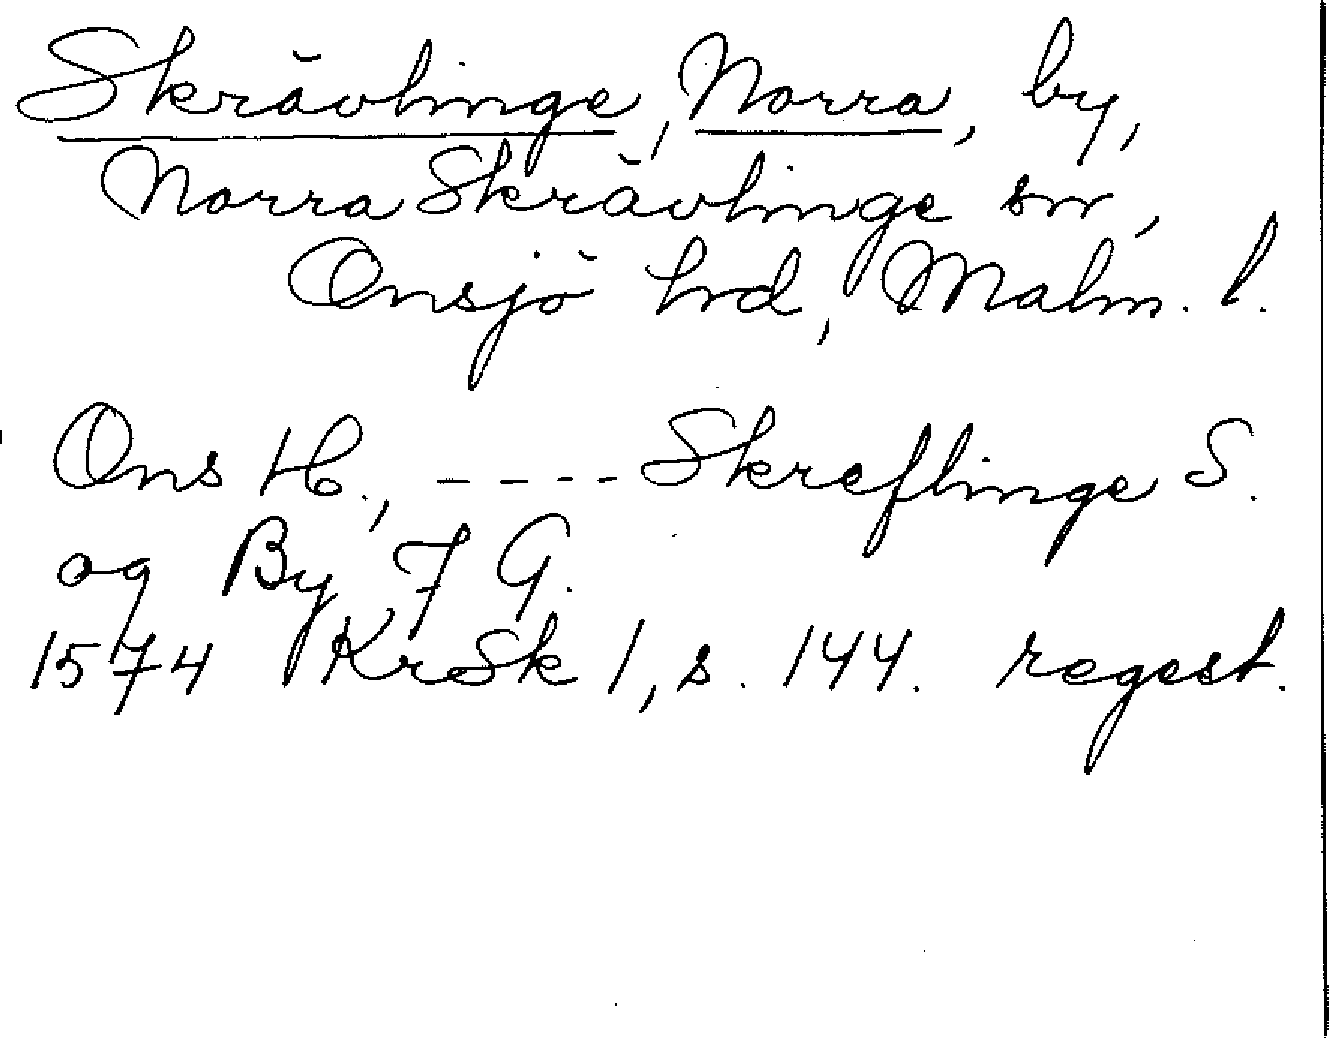 Skrävlinge, Norra, by,
Norra Skrävlinge sn,
Onsjö hrd, Malm. l.
Ons H., ---- Skreflinge S.
og By, 7 G.
1574 KrSk 1, s. 144. regest.